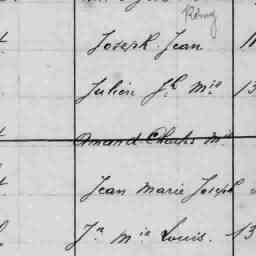 Rémy
Joseph Jean
Julien Jh Mie 13
Amand Charles Mie
Jean Marie Joseph
Jn Mie Louis. 13